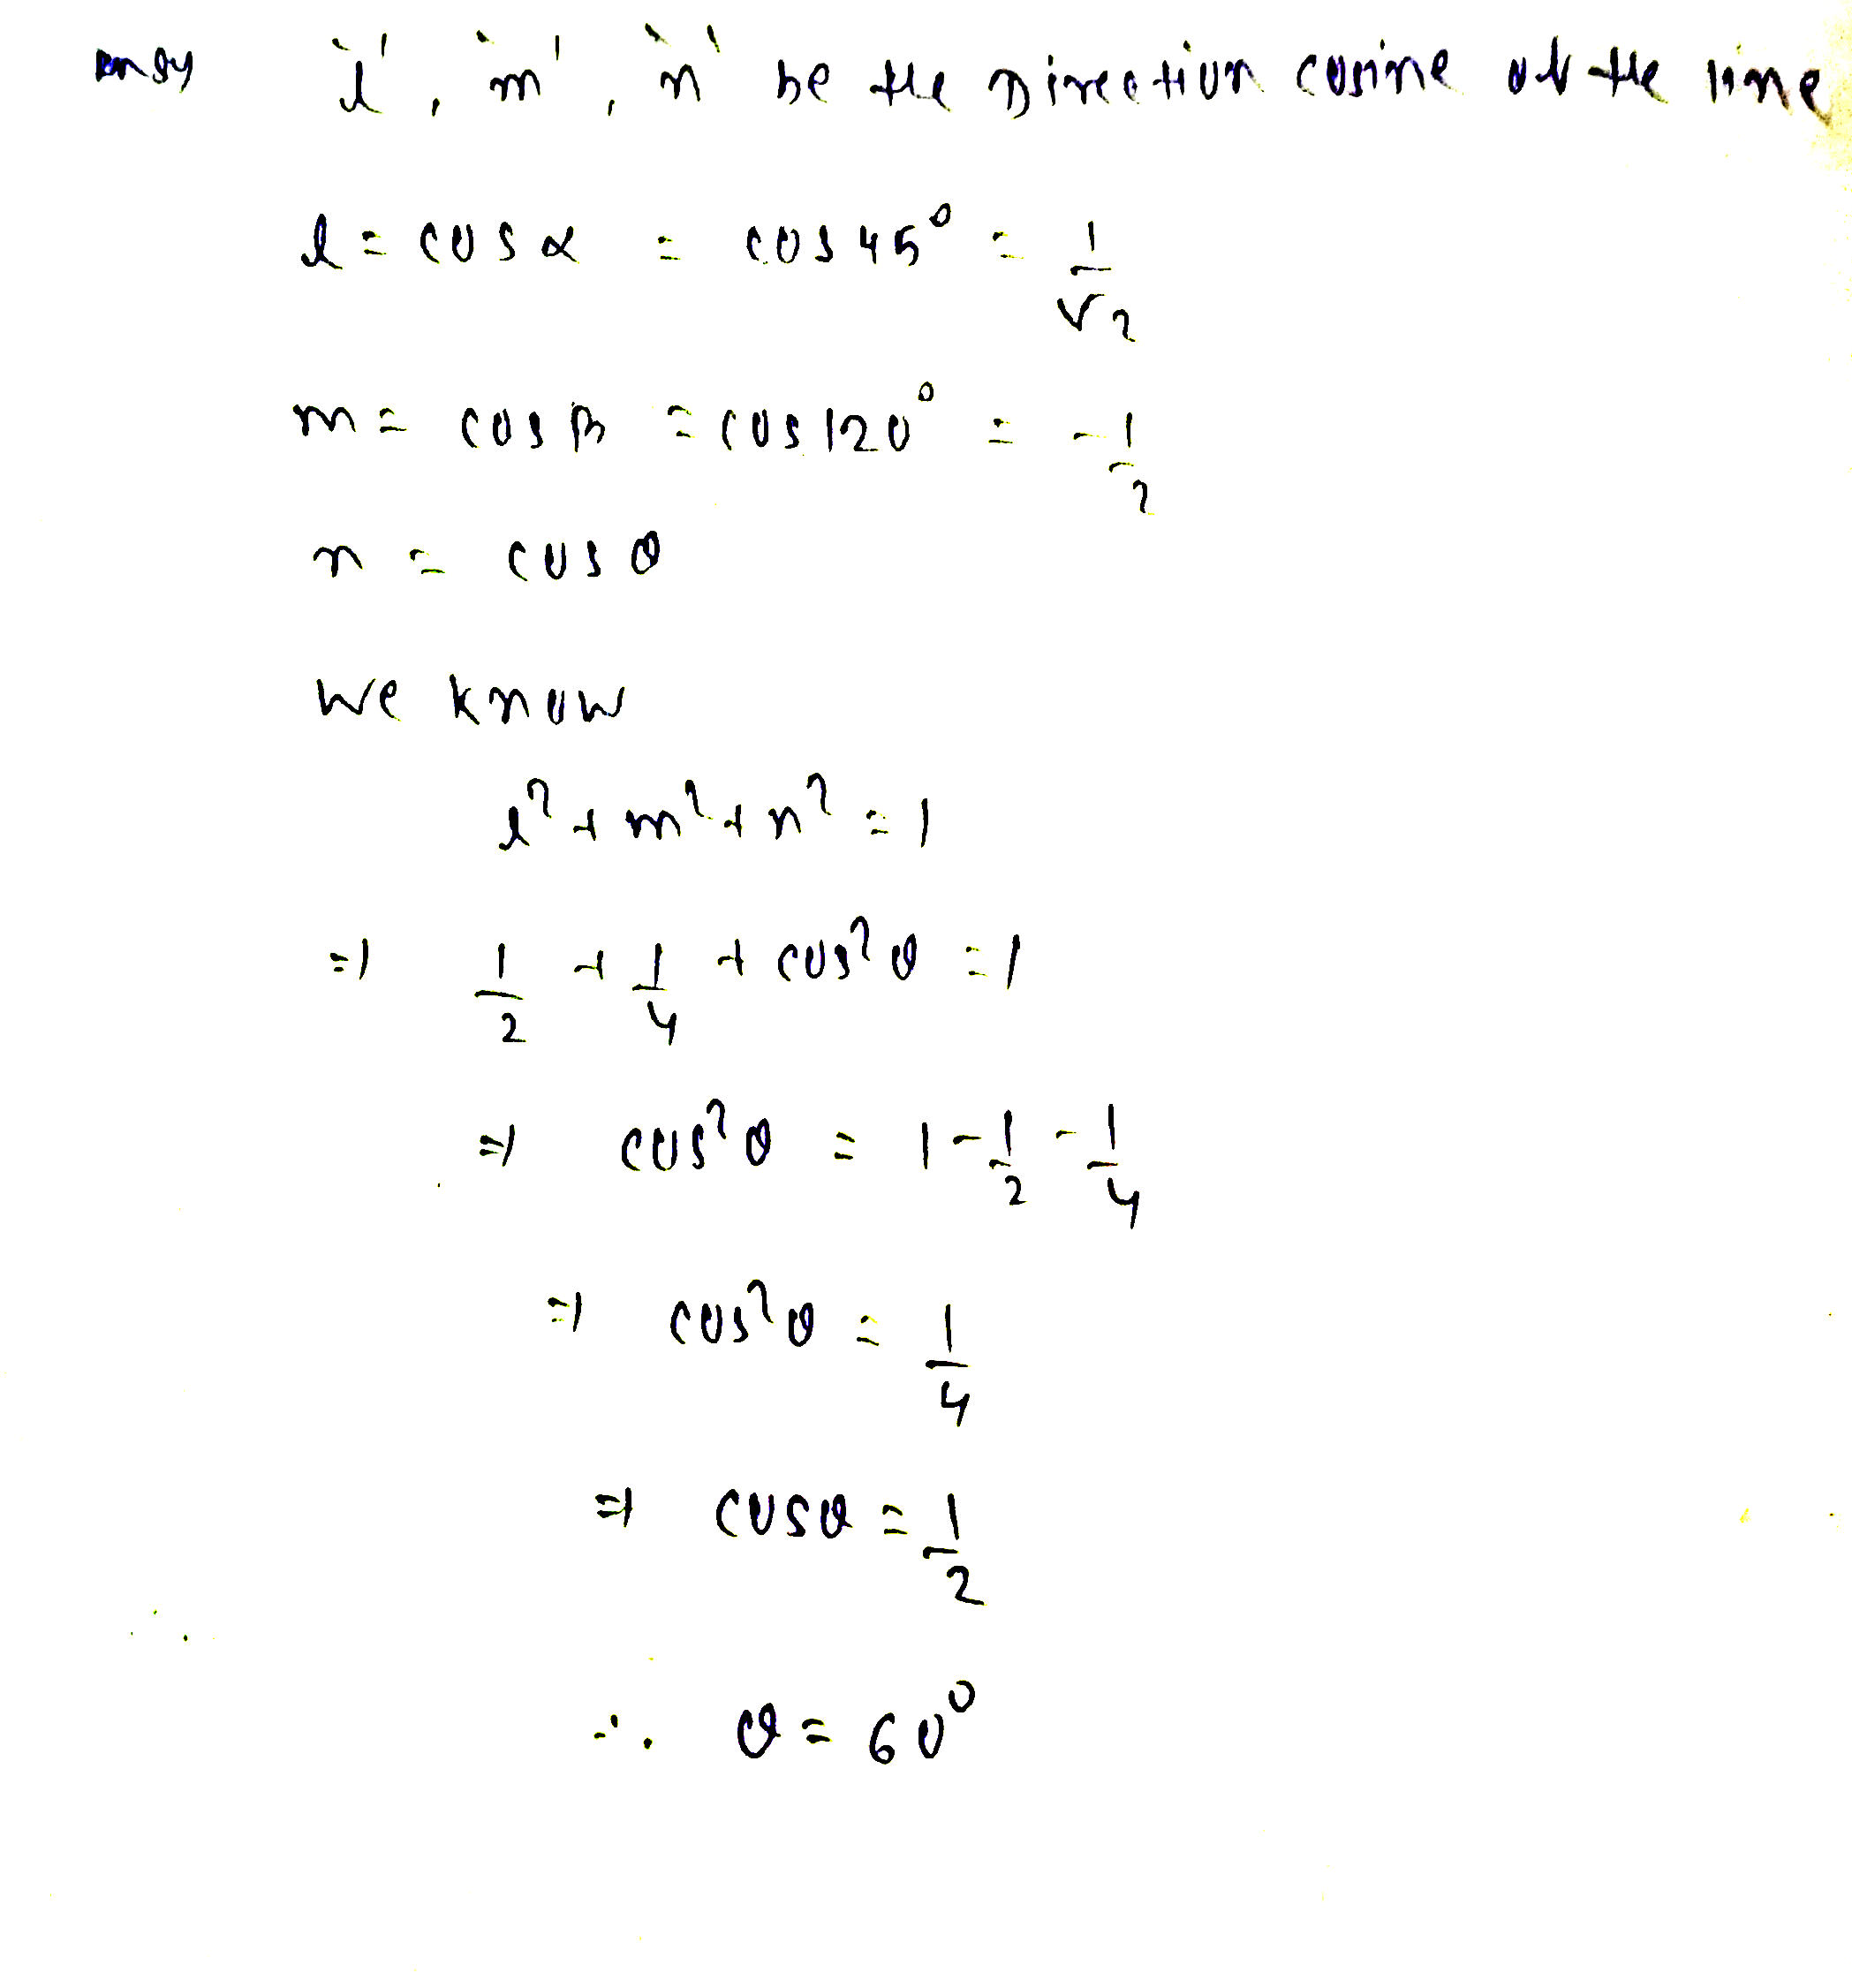 'l', 'm', 'n' be the Direction cosine of the line
l = cos α = cos 45° = 1/√2
m = cos β = cos 120° = -1/2
n = cos θ
We know
l² + m² + n² = 1
⇒ 1/2 + 1/4 + cos²θ = 1
⇒ cos²θ = 1 - 1/2 - 1/4
⇒ cos²θ = 1/4
⇒ cos θ = 1/2
∴ θ = 60°